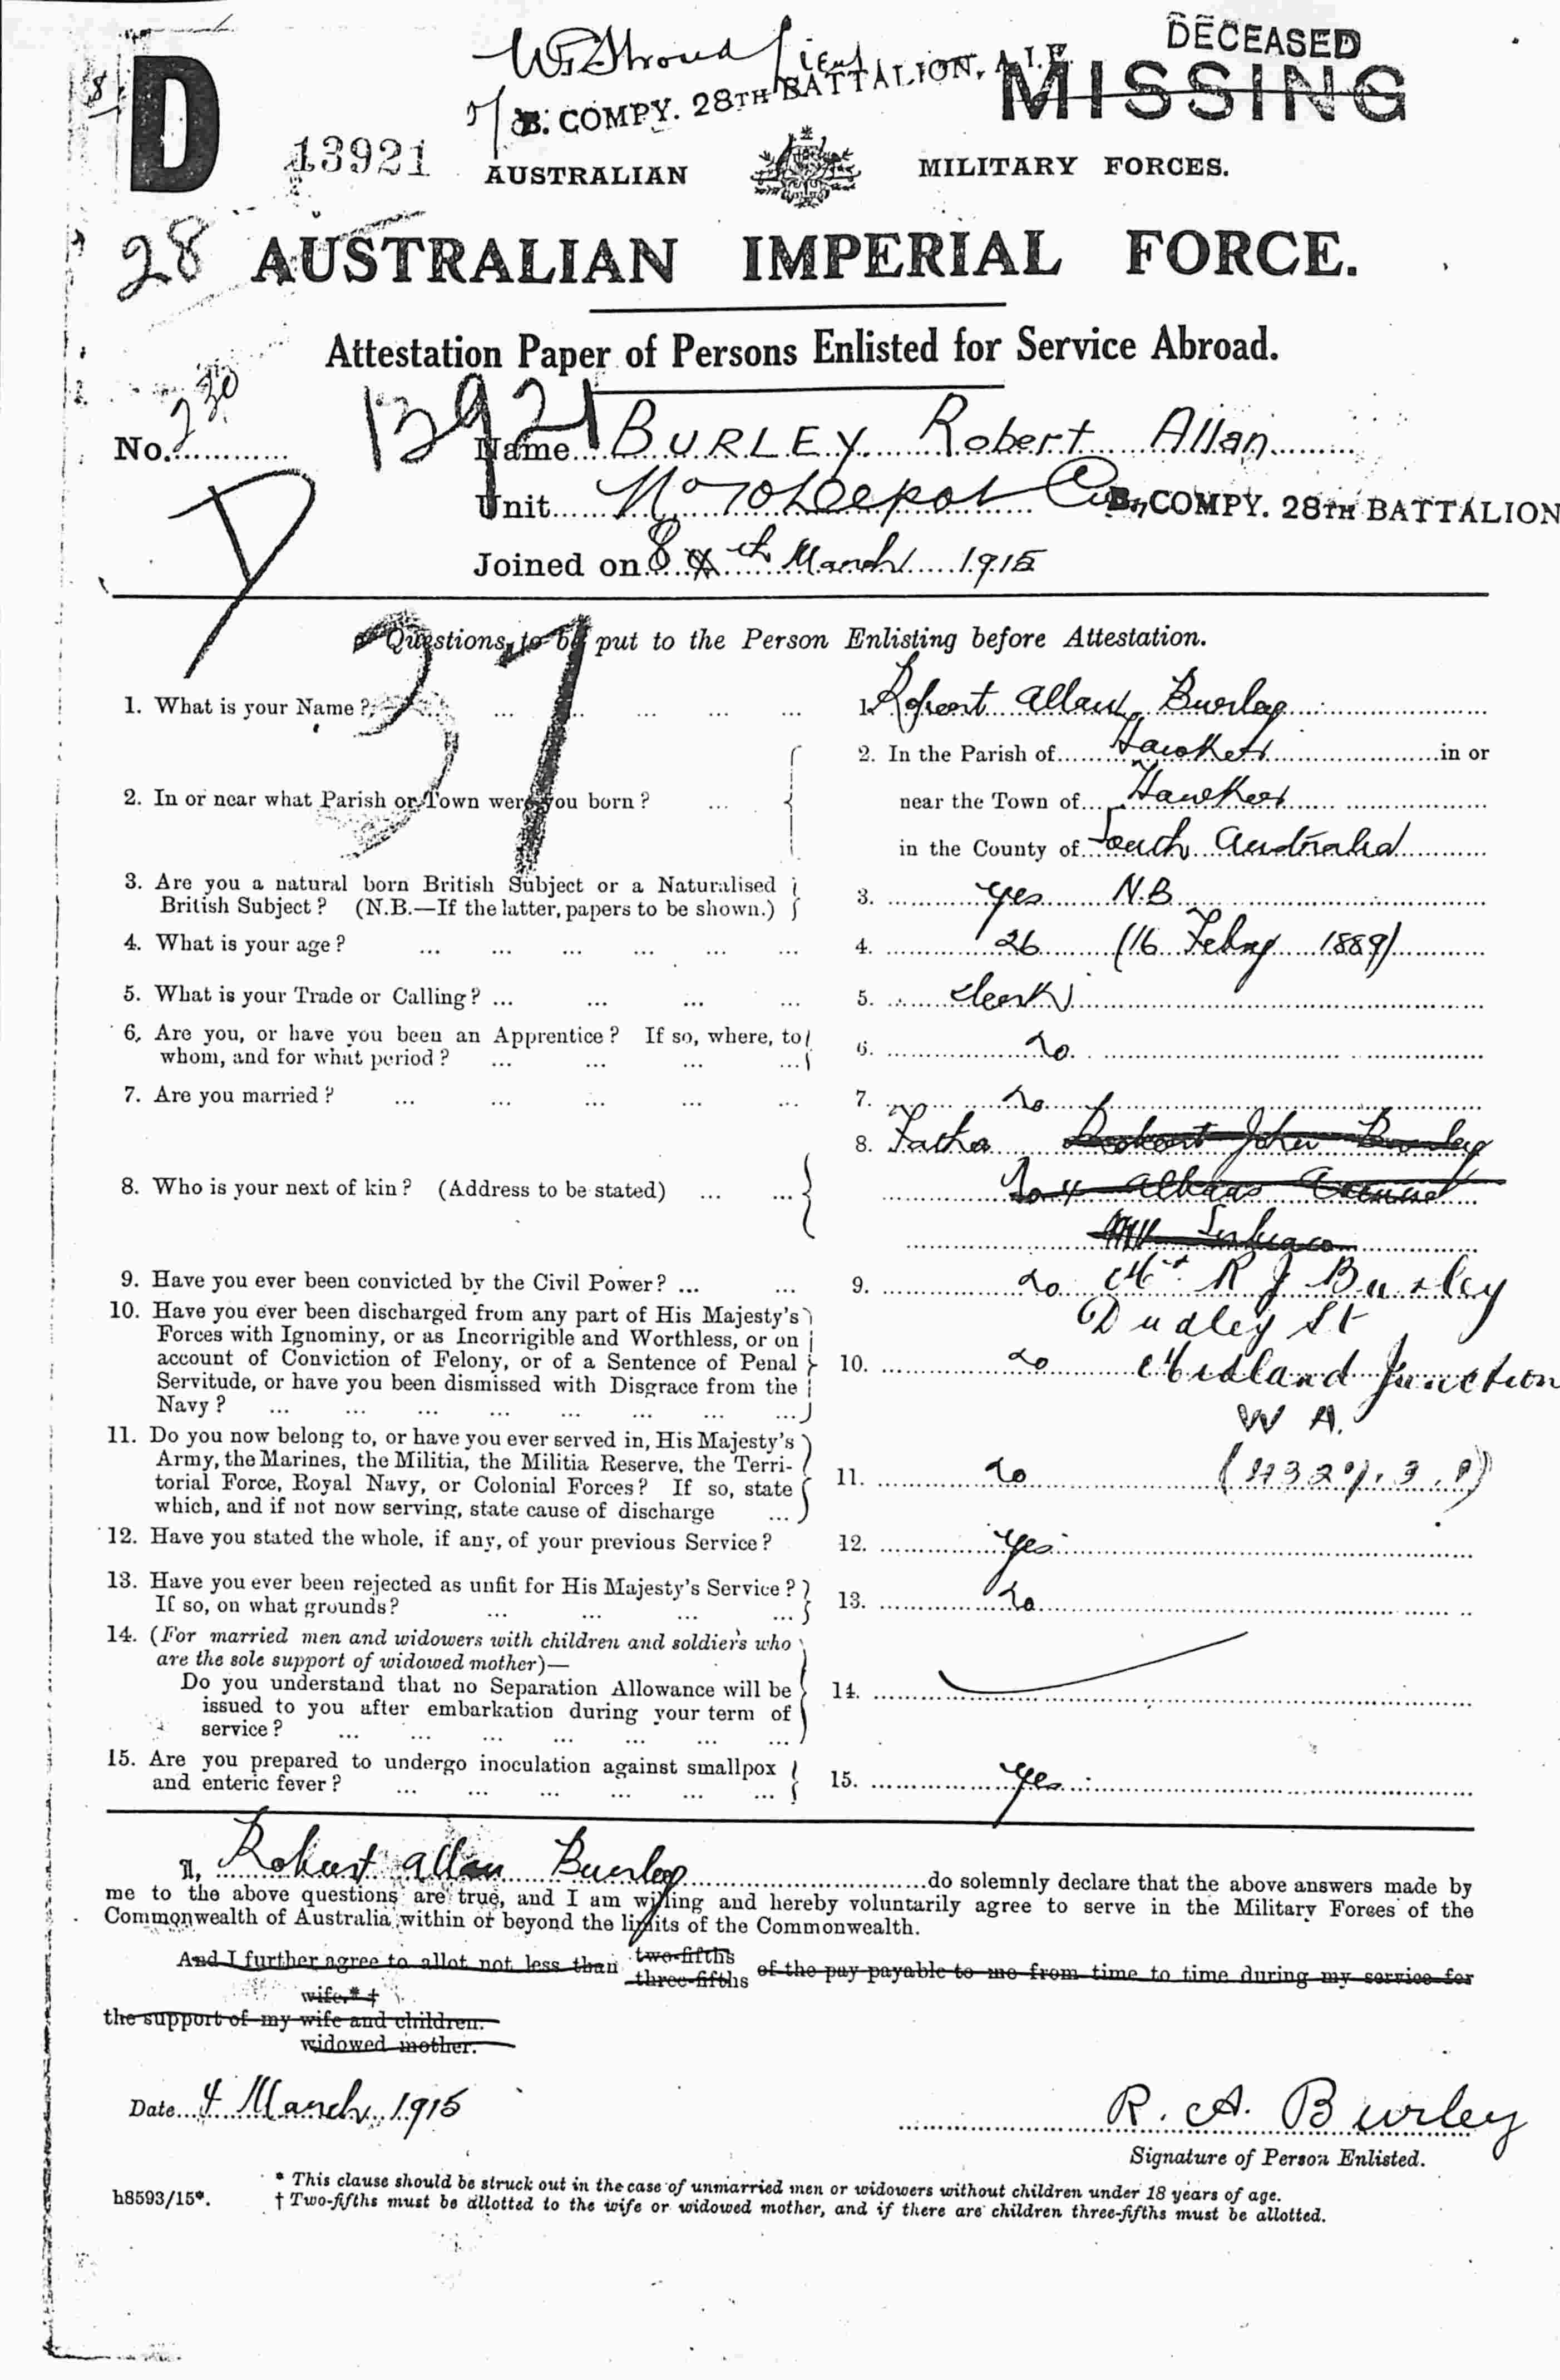 DECEASED
MISSING
D
Lieut
O/C B. COMPY. 28TH BATTALION, A.I.F.
13921
AUSTRALIAN MILITARY FORCES.
28
AUSTRALIAN IMPERIAL FORCE.
Attestation Paper of Persons Enlisted for Service Abroad.
No. 230
13921
Name BURLEY. Robert Allan
Unit No 70 Depot Coy B. COMPY. 28TH BATTALION
Joined on 8 th March 1915
D
37
Questions to be put to the Person Enlisting before Attestation.
1. What is your Name? ... 1. Robert Allan Burley
2. In or near what Parish or Town were you born? ... 2. In the Parish of Hawker in or
near the Town of Hawker
in the County of South Australia
3. Are you a natural born British Subject or a Naturalised
British Subject? (N.B.—If the latter, papers to be shown.) 3. Yes N.B
4. What is your age? ... 4. 26 (16 Febry 1889)
5. What is your Trade or Calling? ... 5. Clerk
6. Are you, or have you been an Apprentice? If so, where, to
whom, and for what period? ... 6. No
7. Are you married? ... 7. No
8. Who is your next of kin? (Address to be stated) ... 8. Father Robert John Burley
No 4 Albans Avenue
Subiaco
9. Have you ever been convicted by the Civil Power? ... 9. No Mr R J Burley
Dudley St
Midland Junction
W A.
10. Have you ever been discharged from any part of His Majesty's
Forces with Ignominy, or as Incorrigible and Worthless, or on
account of Conviction of Felony, or of a Sentence of Penal
Servitude, or have you been dismissed with Disgrace from the
Navy? ... 10. No
11. Do you now belong to, or have you ever served in, His Majesty's
Army, the Marines, the Militia, the Militia Reserve, the Terri-
torial Force, Royal Navy, or Colonial Forces? If so, state
which, and if not now serving, state cause of discharge ... 11. No
12. Have you stated the whole, if any, of your previous Service? 12. Yes
13. Have you ever been rejected as unfit for His Majesty's Service?
If so, on what grounds? ... 13. No
14. (For married men and widowers with children and soldiers who
are the sole support of widowed mother)—
Do you understand that no Separation Allowance will be
issued to you after embarkation during your term of
service? ... 14.
15. Are you prepared to undergo inoculation against smallpox
and enteric fever? ... 15. Yes
I, Robert Allan Burley do solemnly declare that the above answers made by
me to the above questions are true, and I am willing and hereby voluntarily agree to serve in the Military Forces of the
Commonwealth of Australia within or beyond the limits of the Commonwealth.
And I further agree to allot not less than two-fifths three-fifths of the pay payable to me from time to time during my service for
wife.* †
the support of my wife and children.
widowed mother.
Date 4 March 1915
R. A. Burley
Signature of Person Enlisted.
* This clause should be struck out in the case of unmarried men or widowers without children under 18 years of age.
h8593/15*.
† Two-fifths must be allotted to the wife or widowed mother, and if there are children three-fifths must be allotted.